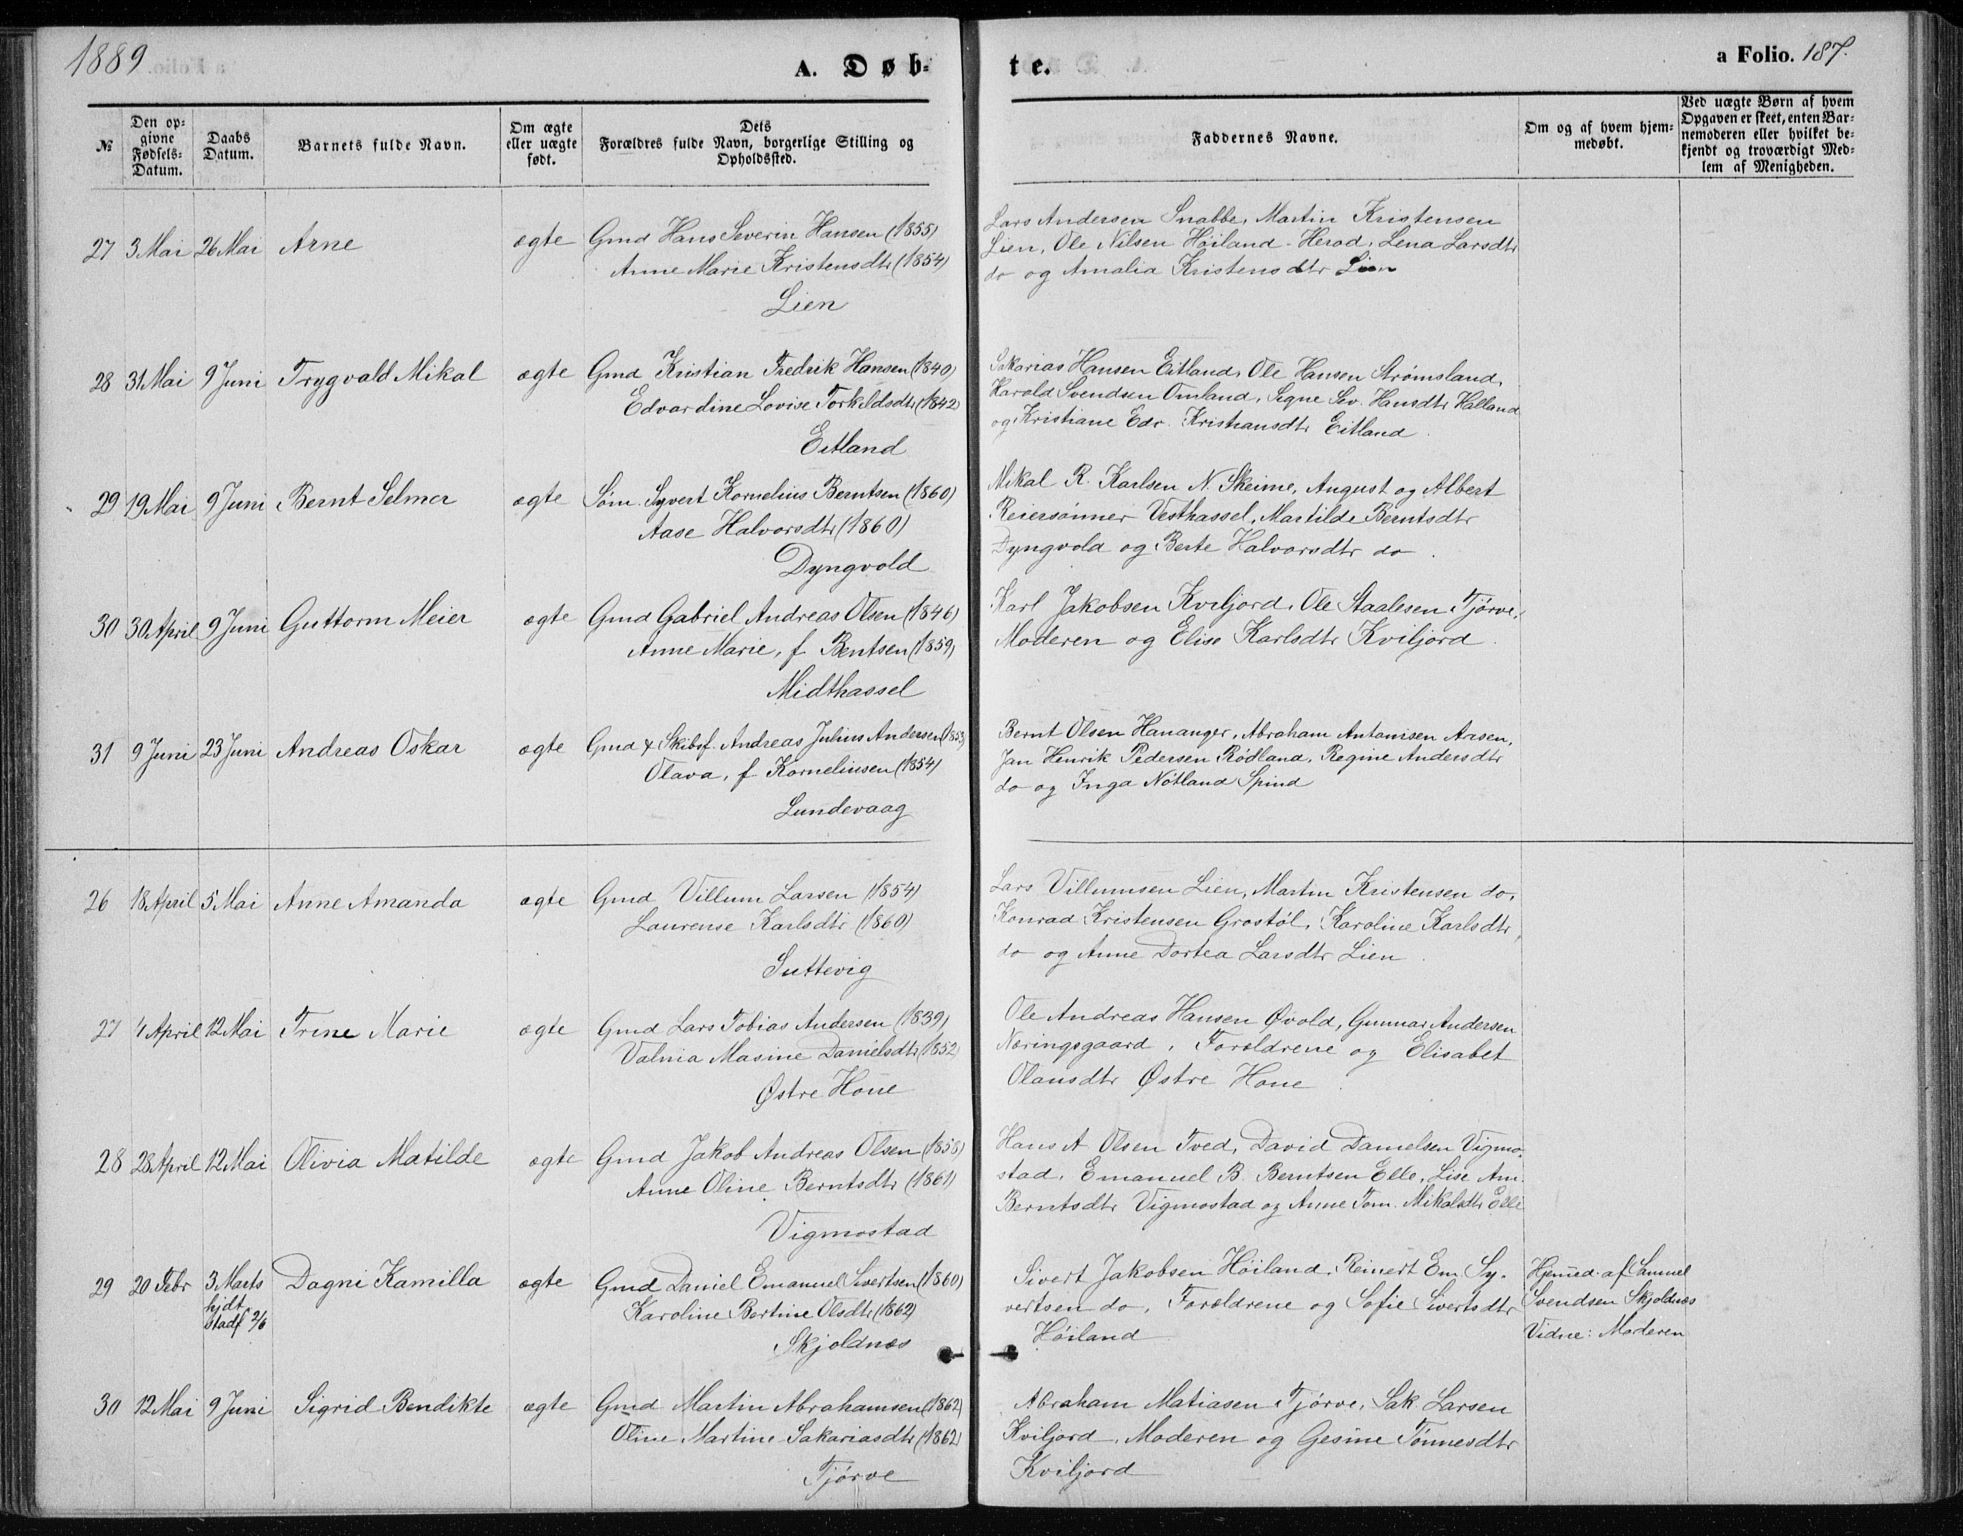 1889
A. Døb-
te.
a Folio. 187.
№
Den op-
givne
Fødsels-
Datum.
Daabs
Datum.
Barnets fulde Navn.
Om ægte
eller uægte
født.
Dets
Forældres fulde Navn, borgerlige Stilling og
Opholdssted.
Faddernes Navne.
Om og af hvem hjem-
medøbt.
Ved uægte Børn af hvem
Opgaven er skeet, enten Bar-
nemoderen eller hvilket be-
kjendt og troværdigt Med-
lem af Menigheden.
27 3 Mai 26 Mai Arne ægte Gmd Hans Severin Hansen (1855)
Anne Marie Kristensdtr (1854)
Lien
Lars Andersen Snabbe, Martin Kristensen
Lien, Ole Nilsen Höiland-Herad, Lena Larsdtr
do og Amalia Kristensdtr Lien
28 31 Mai 9 Juni Trygvald Mikal ægte Gmd Kristian Fredrik Hansen (1840)
Edvardine Lovise Torkildsdtr (1842)
Eitland
Sakarias Hansen Eitland, Ole Hansen Strømsland,
Harald Svendsen Omland, Signe Sev. Hansdtr Halland
og Kristiane Edv. Kristiansdtr Eitland.
29 19 Mai 9 Juni Bernt Selmer ægte Søm. Syvert Kornelius Berntsen (1860)
Aase Halvorsdtr (1860)
Dyngvold
Mikal R. Karlsen N. Skeime, August og Albert
Reiersønner Vesthassel, Martilde Berntsdtr
Dyngvold og Berte Halvorsdtr do.
30 30 April 9 Juni Guttorm Meier ægte Gmd Gabriel Andreas Olsen (1846)
Anne Marie, f. Bentsen (1859)
Midthassel
Karl Jakobsen Kviljord, Ole Staalesen Tjörve,
Moderen og Elise Karlsdtr Kviljord.
31 9 Juni 23 Juni Andreas Oskar ægte Gmd & Skibsf. Andreas Julius Andersen (1853)
Olava, f. Korneliusen (1854)
Lundevaag
Bernt Olsen Hananger, Abraham Antonisen Aasen,
Jan Henrik Pedersen Rödland, Regine Andersdtr
do og Inga Nötland Spind
26 18 April 5 Mai Anne Amanda ægte Gmd Villum Larsen (1854)
Laurense Karlsdtr (1860)
Suttevig
Lars Villumsen Lien, Martin Kristensen do,
Konrad Kristensen Grostöl, Karoline Karlsdtr,
do og Anne Dortea Larsdtr Lien.
27 4 April 12 Mai Trine Marie ægte Gmd Lars Tobias Andersen (1839)
Valnia Masine Danielsdtr (1852)
Østre Hone
Ole Andreas Hansen Øvold, Gunnar Andersen
Næringsgaard, Forældrene og Elisabet
Olausdtr Østre Hone.
28 28 April 12 Mai Olivia Matilde ægte Gmd Jakob Andreas Olsen (1858)
Anne Oline Berntsdtr (1861)
Vigmostad
Hans A Olsen Tved, David Danielsen Vigmo-
stad, Emanuel B. Berntsen Elle, Lise Am.
Berntsdtr Vigmostad og Anne Tom. Mikalsdtr Elle
29 20 Febr 3 Marts Dagni Kamilla ægte Gmd Daniel Emanuel Sivertsen (1860)
hjdt
Stadf 2/6
Karoline Bertine Olsdtr (1862)
Skjoldnæs
Sivert Jakobsen Höiland, Reinert Em Sy-
vertsen do, Forældrene og Sofie Sivertsdtr
Höiland
Hjemd. af Samuel
Svendsen Skjoldnæs
Vidne: Moderen
30 12 Mai 9 Juni Sigrid Bendikte ægte Gmd Martin Abrahamsen (1862)
Oline Martine Sakariasdtr (1862)
Tjörve
Abraham Matiasen Tjörve, Sak. Larsen
Kviljord, Moderen og Gesine Tönnesdtr
Kviljord